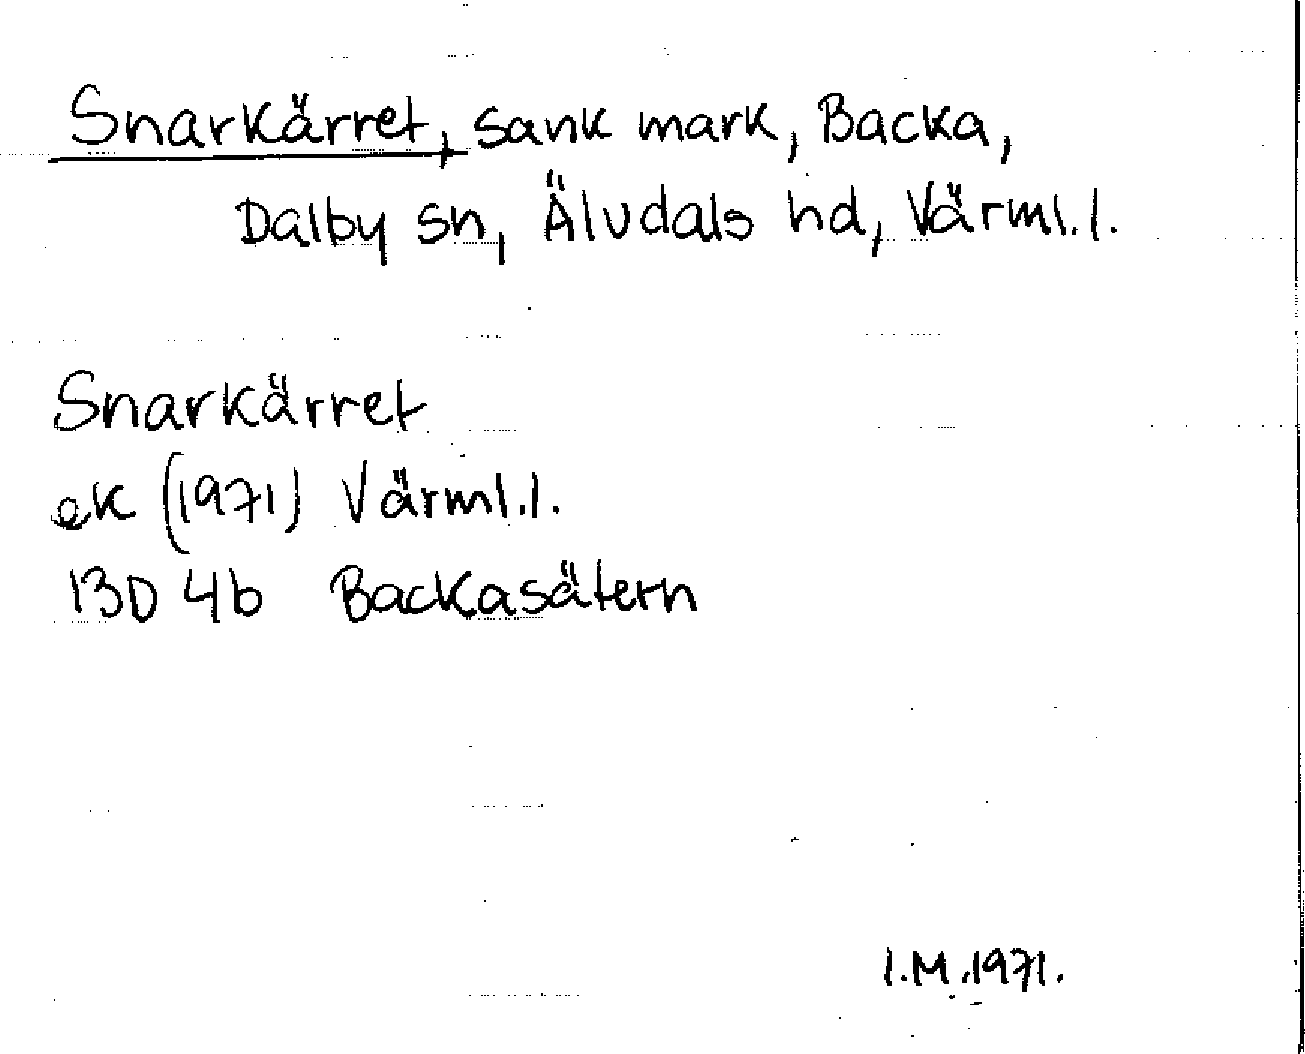 Snarkärret, sank mark, Backa,
Dalby sn, Älvdals hd, Värml.l.
Snarkärret
ek (1971) Värml.l.
13D 4b Backasätern
I.M.1971.